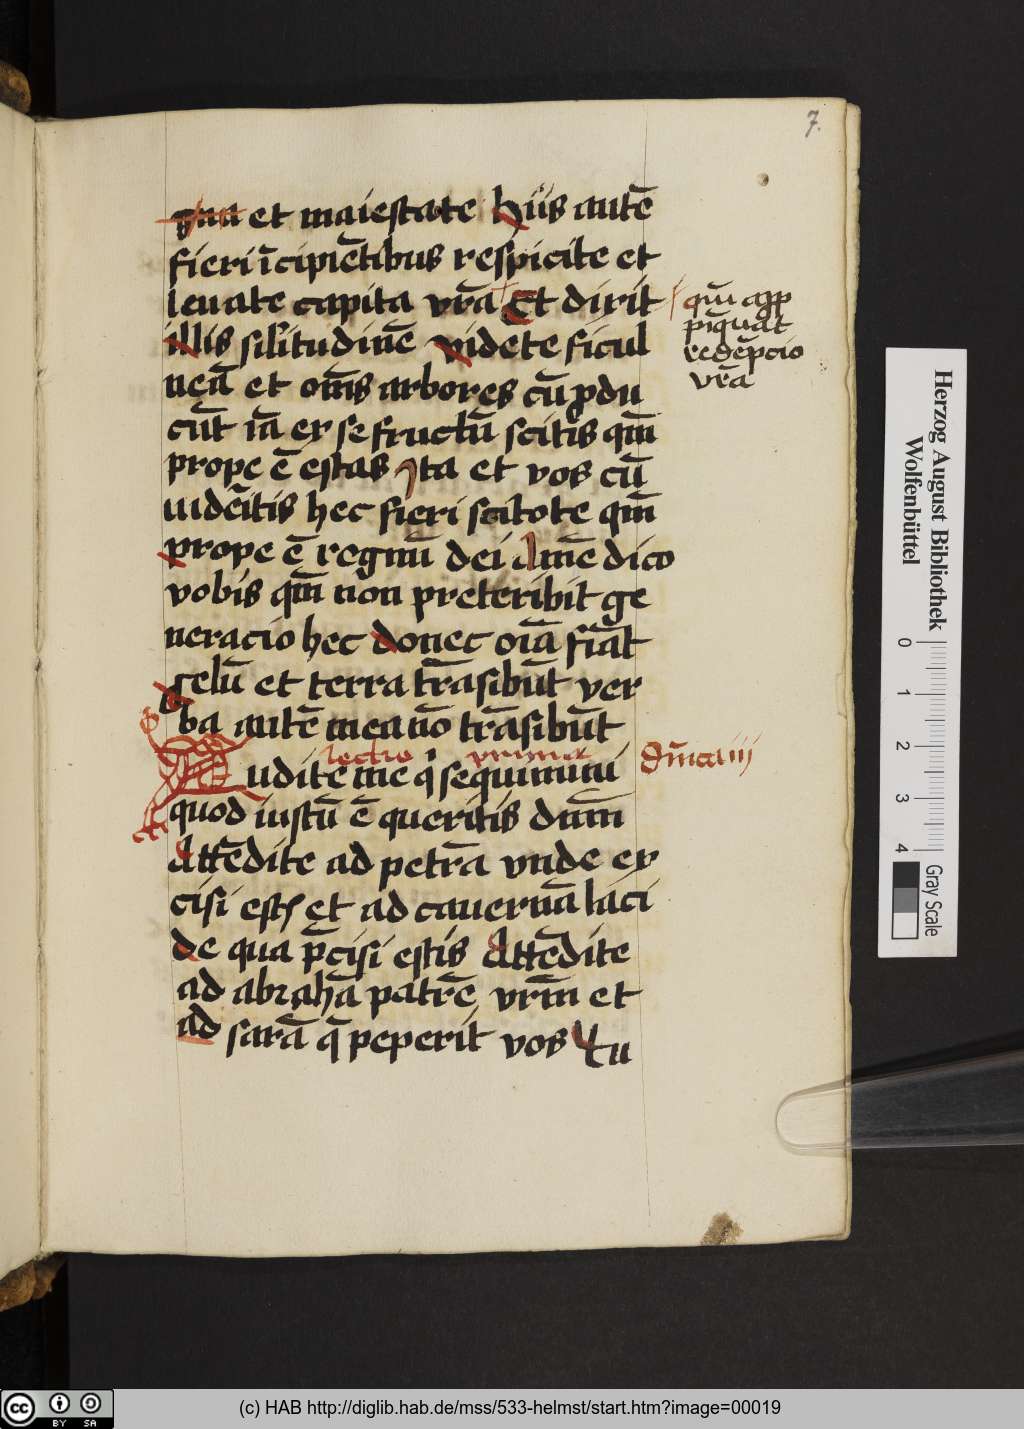 7.
gna et maiestate hiis autē
fieri īcipiētibus respicite et
leuate capita vr̄a Et dixit
illis sil'itudinē videte ficul
neā et om̄s arbores cū pdu
cūt iā ex se fructū scitis qm̄
prope ē estas Ita et vos cū
uidētis hec fieri scitote qm̄
prope ē regnū dei Amē dico
vobis qm̄ non preteribit ge
neracio hec donec oīa fiāt
Celū et terra trāsibūt ver
ba autē mea nō trāsibūt
lectio prima
Audite me q̄ sequimini
quod iustū ē queritis dnm̄
Attēdite ad petrā vnde ex
cisi est(is) et ad cauernā laci
de qua p̄cisi estis Attēdite
ad abrahā patrē vrm̄ et
ad sarā q̄ peperit vos Et u
qm̄ app
piquat
redēpcio
vr̄a
dn̄ica iij
Herzog August Bibliothek
Wolfenbüttel
0
1
2
3
4
Gray Scale
cc BY SA
(c) HAB http://diglib.hab.de/mss/533-helmst/start.htm?image=00019